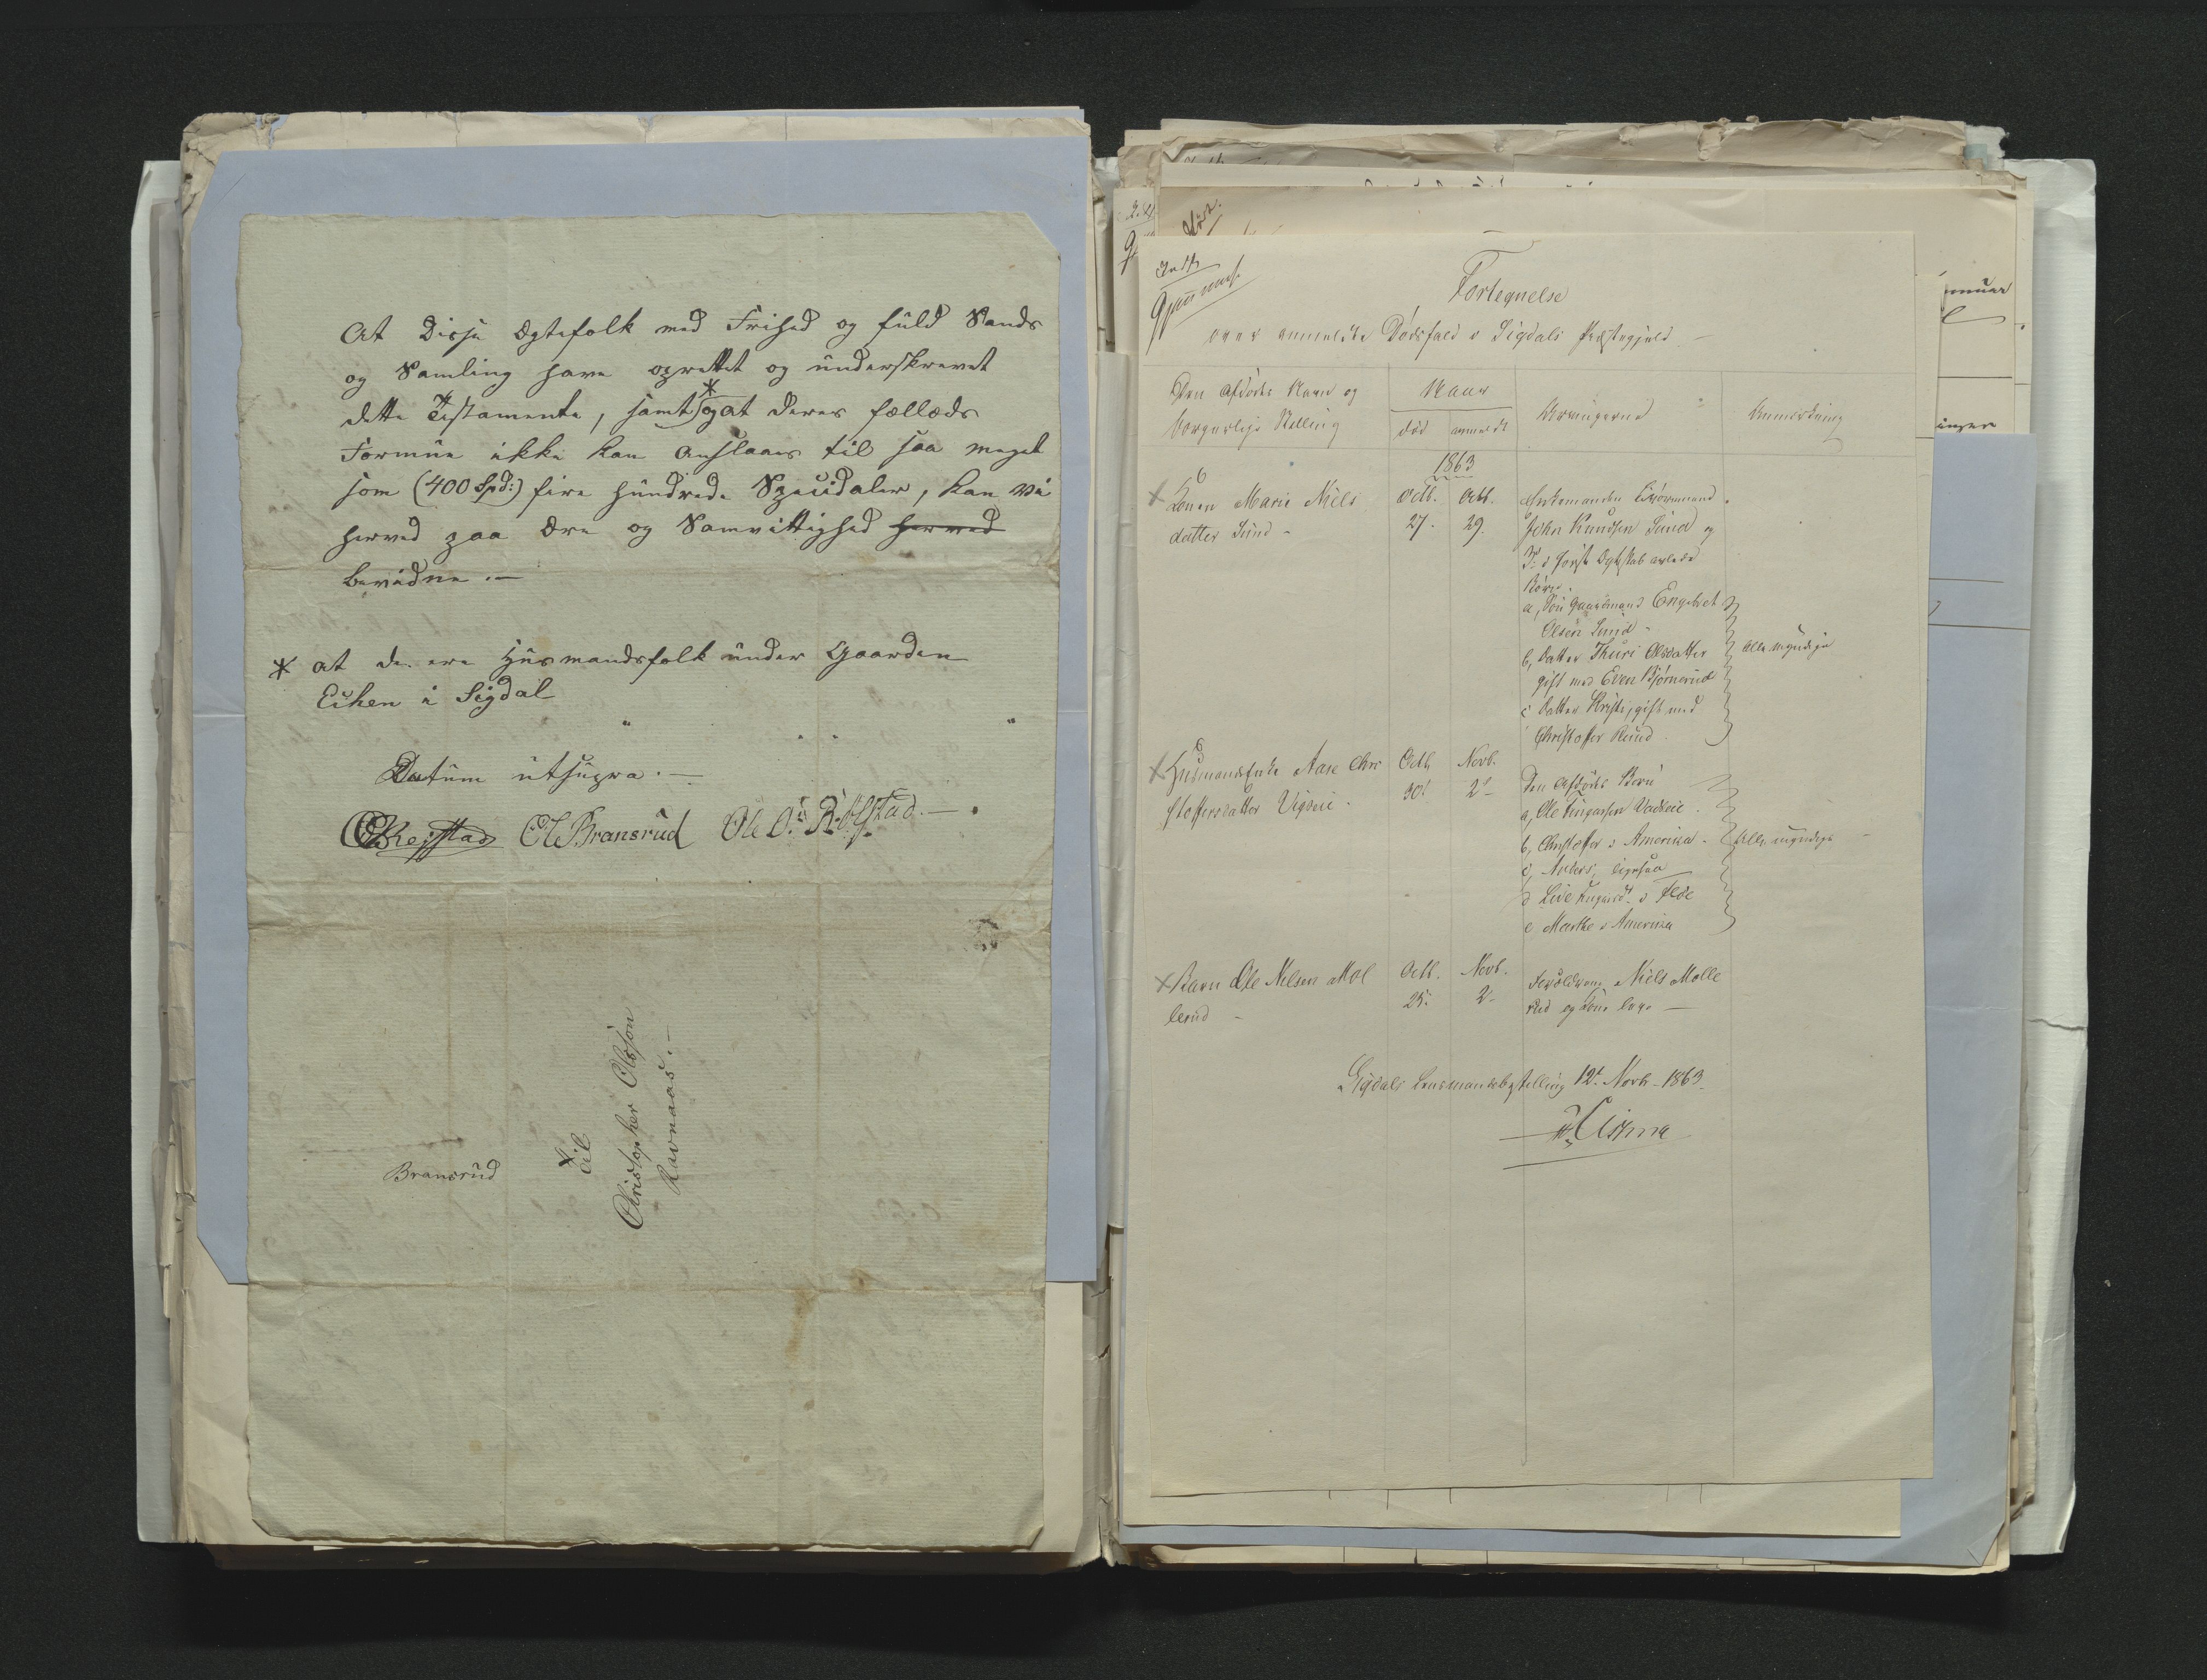 At disse Ægtefolk med Frihed og fuld Sands
og Samling have oprettet og underskrevet
dette Testamente, samt * og at deres fælleds
Formue ikke kan anslaaes til saa meget
som (400 Spd:) fire hundrede Speciedaler, kan vi
herved paa Ære og Samvittighed herved
bevidne.—
* at de ere Huusmandsfolk under Gaarden
Eihen i Sigdal
Datum utsupra.—
Ole Bransrud Ole
Bransrud
Til
Christopher Olsson
Ravnaas.—
Fortegnelse
over anmeldte Dødsfald i Sigdals Præstegjeld
Den Afdødes Navn og
borgerlige Stilling
Naar
død anmeldt
Arvingerne
Anmerkning
1863
Konen Marie Niels
datter Lund -
Octb.
27.
Octb.
29.
Enkemanden
John Knudsen Lund og
i første Ægteskab avlede
Børn.
a, Søn Gaardmand Engebret
Olsen Lund
b, Datter Thuri Olsdatter
gift med Even Bjørnerud
c Datter Kristi, gift med
Christoffer Rund
Alle myndige
Husmandsenke Aase Chri
stoffersdatter Vigseie.
Octb
30'
Novb.
2d
Den Afdødes Børn
a, Ole
b, Christoffer i Amerika
c, Anders, ligesaa
d Live
e Marthe i Amerika
Alle myndige
Barn Ole Nilsen Mol
lerud -
Octb.
25.
Novb.
2
Forældrene Niels Molle
rud og Kone
Sigdals Lensmandsbestilling 12t Novb. 1863